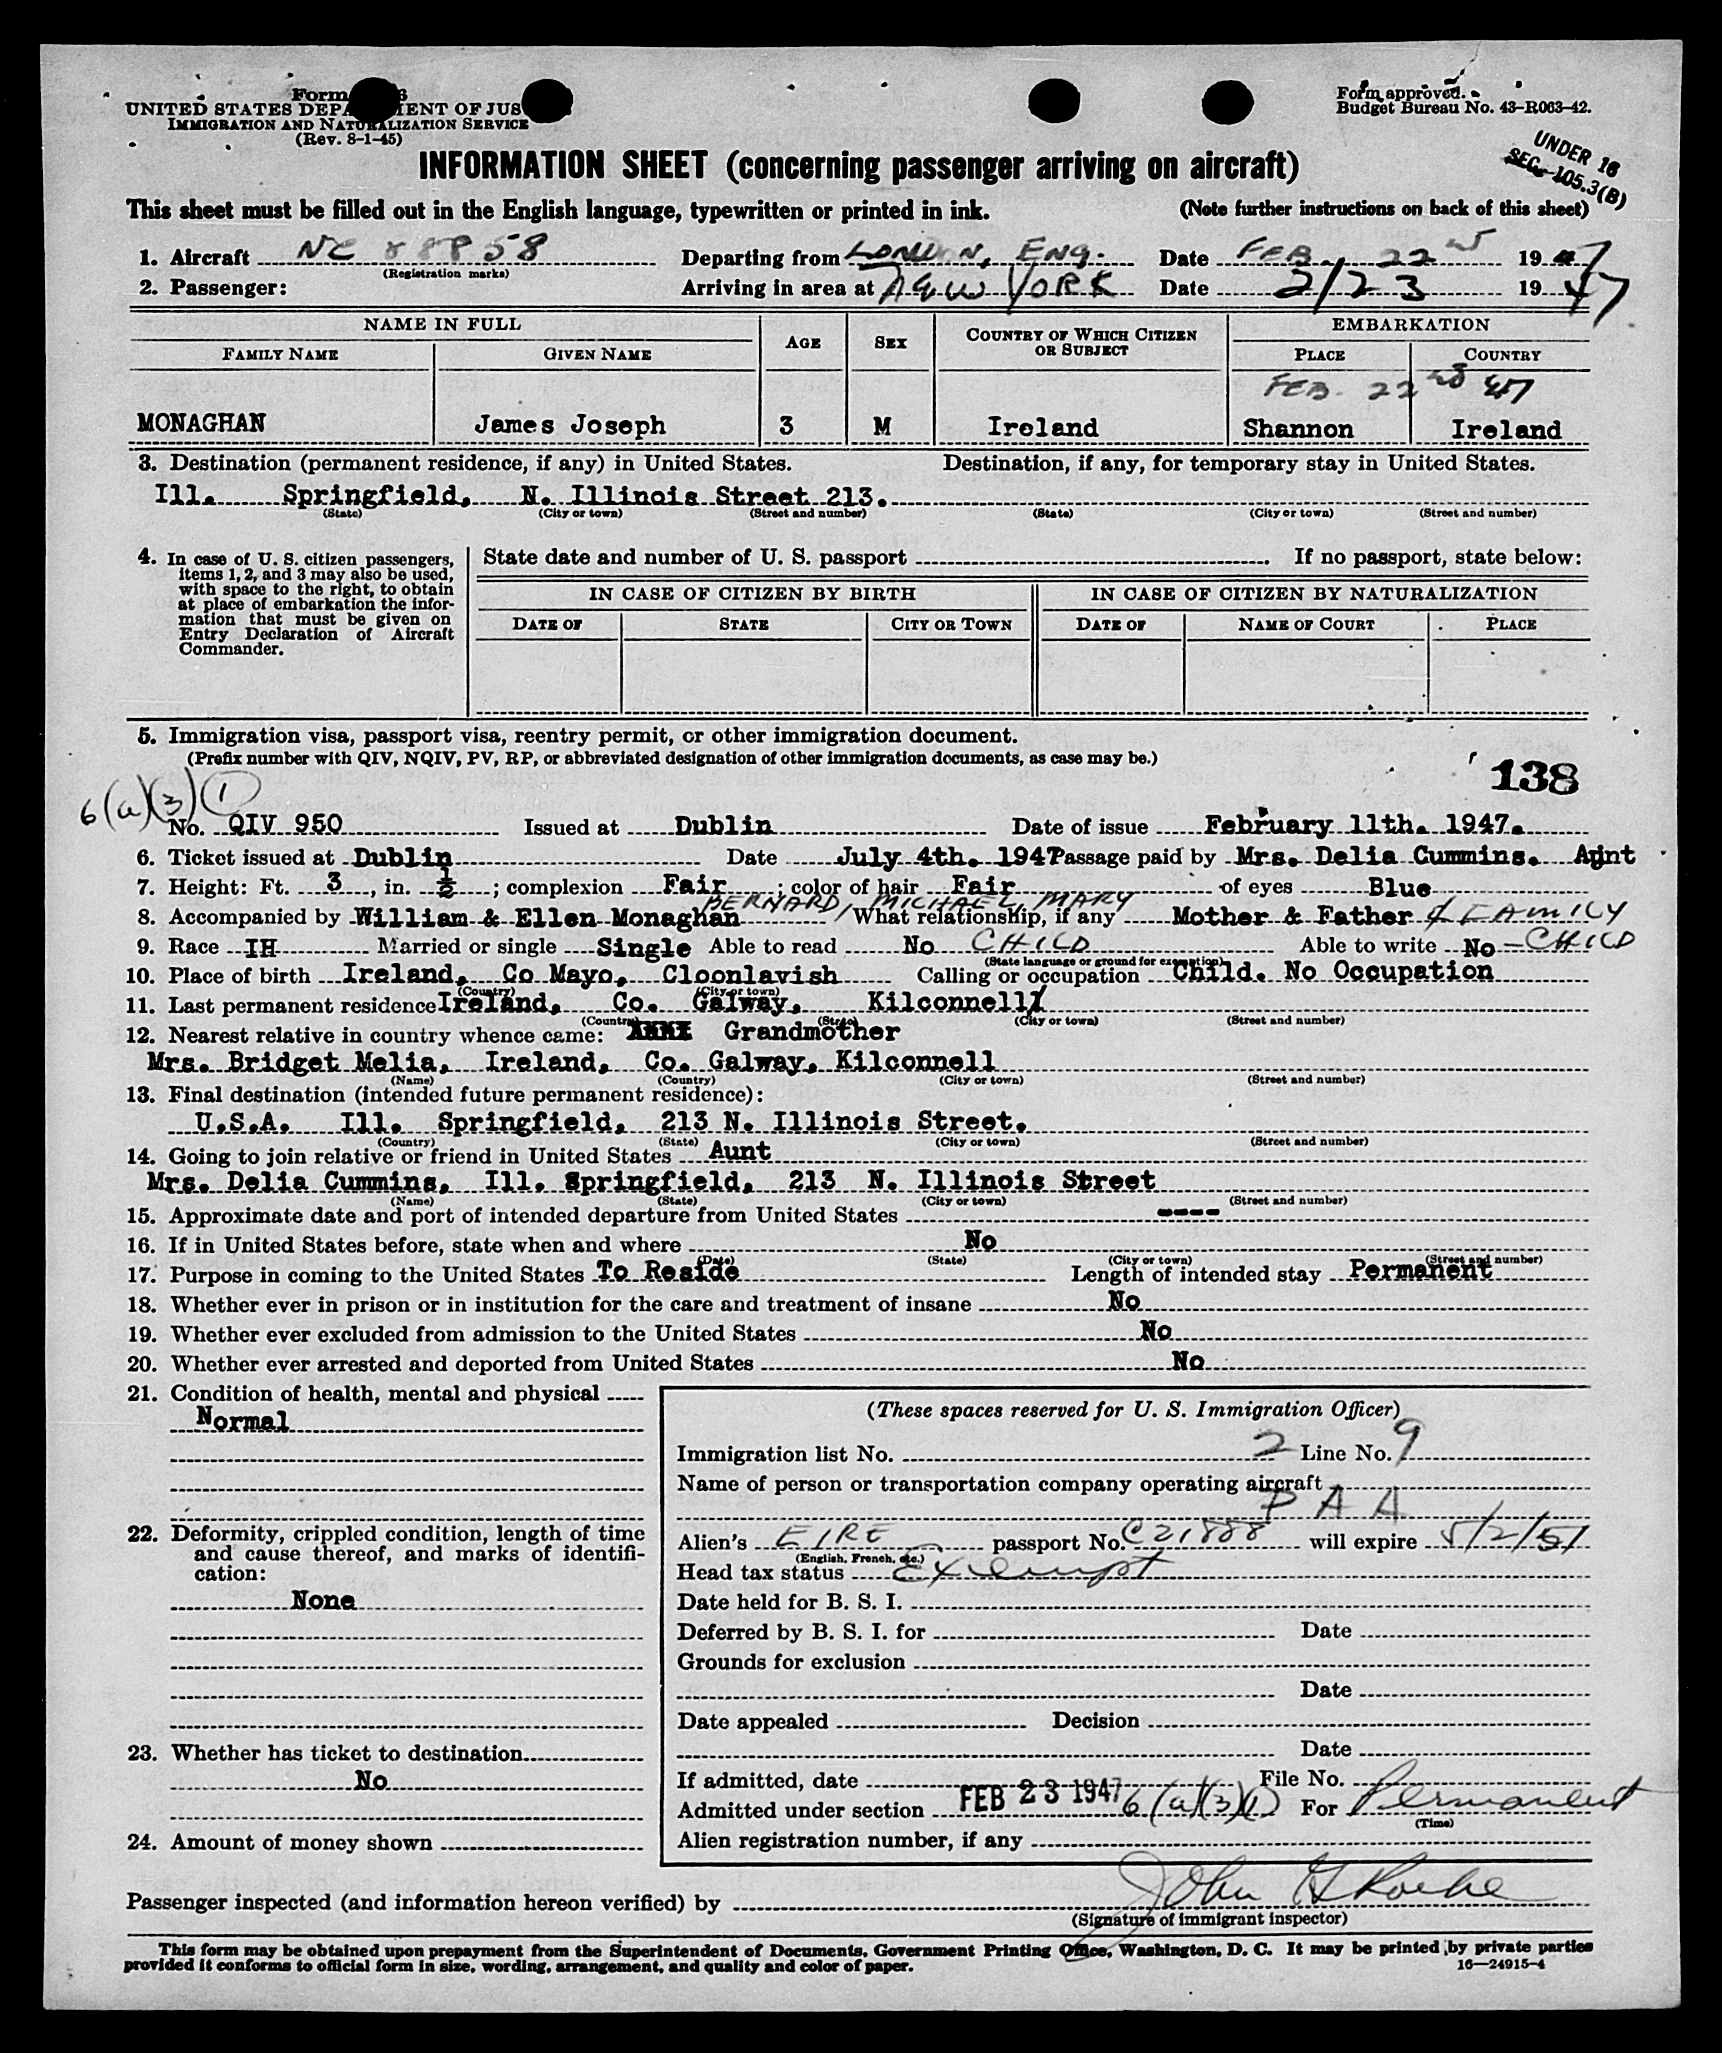 Form
UNITED STATES DEPA ENT OF JUS
IMMIGRATION AND NATURALIZATION SERVICE
(Rev. 8-1-45)
Form approved.
Budget Bureau No. 43-R063-42.
UNDER 16
SEC. 105.3(B)
INFORMATION SHEET (concerning passenger arriving on aircraft)
This sheet must be filled out in the English language, typewritten or printed in ink. (Note further instructions on back of this sheet)
1. Aircraft NC 88858 Departing from LONDON, ENG. Date FEB. 22 1947
(Registration marks)
2. Passenger: Arriving in area at NEW YORK Date 2/23 1947
NAME IN FULL AGE SEX COUNTRY OF WHICH CITIZEN OR SUBJECT EMBARKATION
FAMILY NAME GIVEN NAME PLACE COUNTRY
FEB. 22nd 47
MONAGHAN James Joseph 3 M Ireland Shannon Ireland
3. Destination (permanent residence, if any) in United States. Destination, if any, for temporary stay in United States.
Ill. Springfield, N. Illinois Street 213.
(State) (City or town) (Street and number) (State) (City or town) (Street and number)
4. In case of U. S. citizen passengers, items 1, 2, and 3 may also be used, with space to the right, to obtain at place of embarkation the information that must be given on Entry Declaration of Aircraft Commander.
State date and number of U. S. passport If no passport, state below:
IN CASE OF CITIZEN BY BIRTH IN CASE OF CITIZEN BY NATURALIZATION
DATE OF STATE CITY OR TOWN DATE OF NAME OF COURT PLACE
5. Immigration visa, passport visa, reentry permit, or other immigration document.
(Prefix number with QIV, NQIV, PV, RP, or abbreviated designation of other immigration documents, as case may be.)
138
6(a)(3)(1)
No. QIV 950 Issued at Dublin Date of issue February 11th. 1947.
6. Ticket issued at Dublin Date July 4th. 1947 Passage paid by Mrs. Delia Cummins. Aunt
7. Height: Ft. 3, in. 1/2; complexion Fair; color of hair Fair of eyes Blue
BERNARD, MICHAEL, MARY
8. Accompanied by William & Ellen Monaghan What relationship, if any Mother & Father & FAMILY
9. Race IH Married or single Single Able to read No CHILD Able to write No - CHILD
(State language or ground for exemption)
10. Place of birth Ireland, Co Mayo, Cloonlavish Calling or occupation Child. No Occupation
(Country) (City or town)
11. Last permanent residence Ireland, Co. Galway, Kilconnell
(Country) (State) (City or town) (Street and number)
12. Nearest relative in country whence came: Grandmother
Mrs. Bridget Melia, Ireland, Co. Galway, Kilconnell
(Name) (Country) (City or town) (Street and number)
13. Final destination (intended future permanent residence):
U.S.A. Ill. Springfield, 213 N. Illinois Street.
(Country) (State) (City or town) (Street and number)
14. Going to join relative or friend in United States Aunt
Mrs. Delia Cummins, Ill. Springfield, 213 N. Illinois Street
(Name) (State) (City or town) (Street and number)
15. Approximate date and port of intended departure from United States ----
16. If in United States before, state when and where No
(Date) (State) (City or town) (Street and number)
17. Purpose in coming to the United States To Reside Length of intended stay Permanent
18. Whether ever in prison or in institution for the care and treatment of insane No
19. Whether ever excluded from admission to the United States No
20. Whether ever arrested and deported from United States No
21. Condition of health, mental and physical
Normal
22. Deformity, crippled condition, length of time and cause thereof, and marks of identification:
None
23. Whether has ticket to destination
No
24. Amount of money shown
(These spaces reserved for U. S. Immigration Officer)
Immigration list No. 2 Line No. 9
Name of person or transportation company operating aircraft
P A A
Alien's EIRE passport No. C21888 will expire 5/2/51
(English, French, etc.)
Head tax status Exempt
Date held for B. S. I.
Deferred by B. S. I. for Date
Grounds for exclusion
Date
Date appealed Decision
Date
If admitted, date FEB 23 1947 File No.
Admitted under section 6(a)(3)(1) For Permanent
(Time)
Alien registration number, if any
Passenger inspected (and information hereon verified) by John
(Signature of immigrant inspector)
This form may be obtained upon prepayment from the Superintendent of Documents, Government Printing Office, Washington, D. C. It may be printed by private parties
provided it conforms to official form in size, wording, arrangement, and quality and color of paper.
16—24915-4